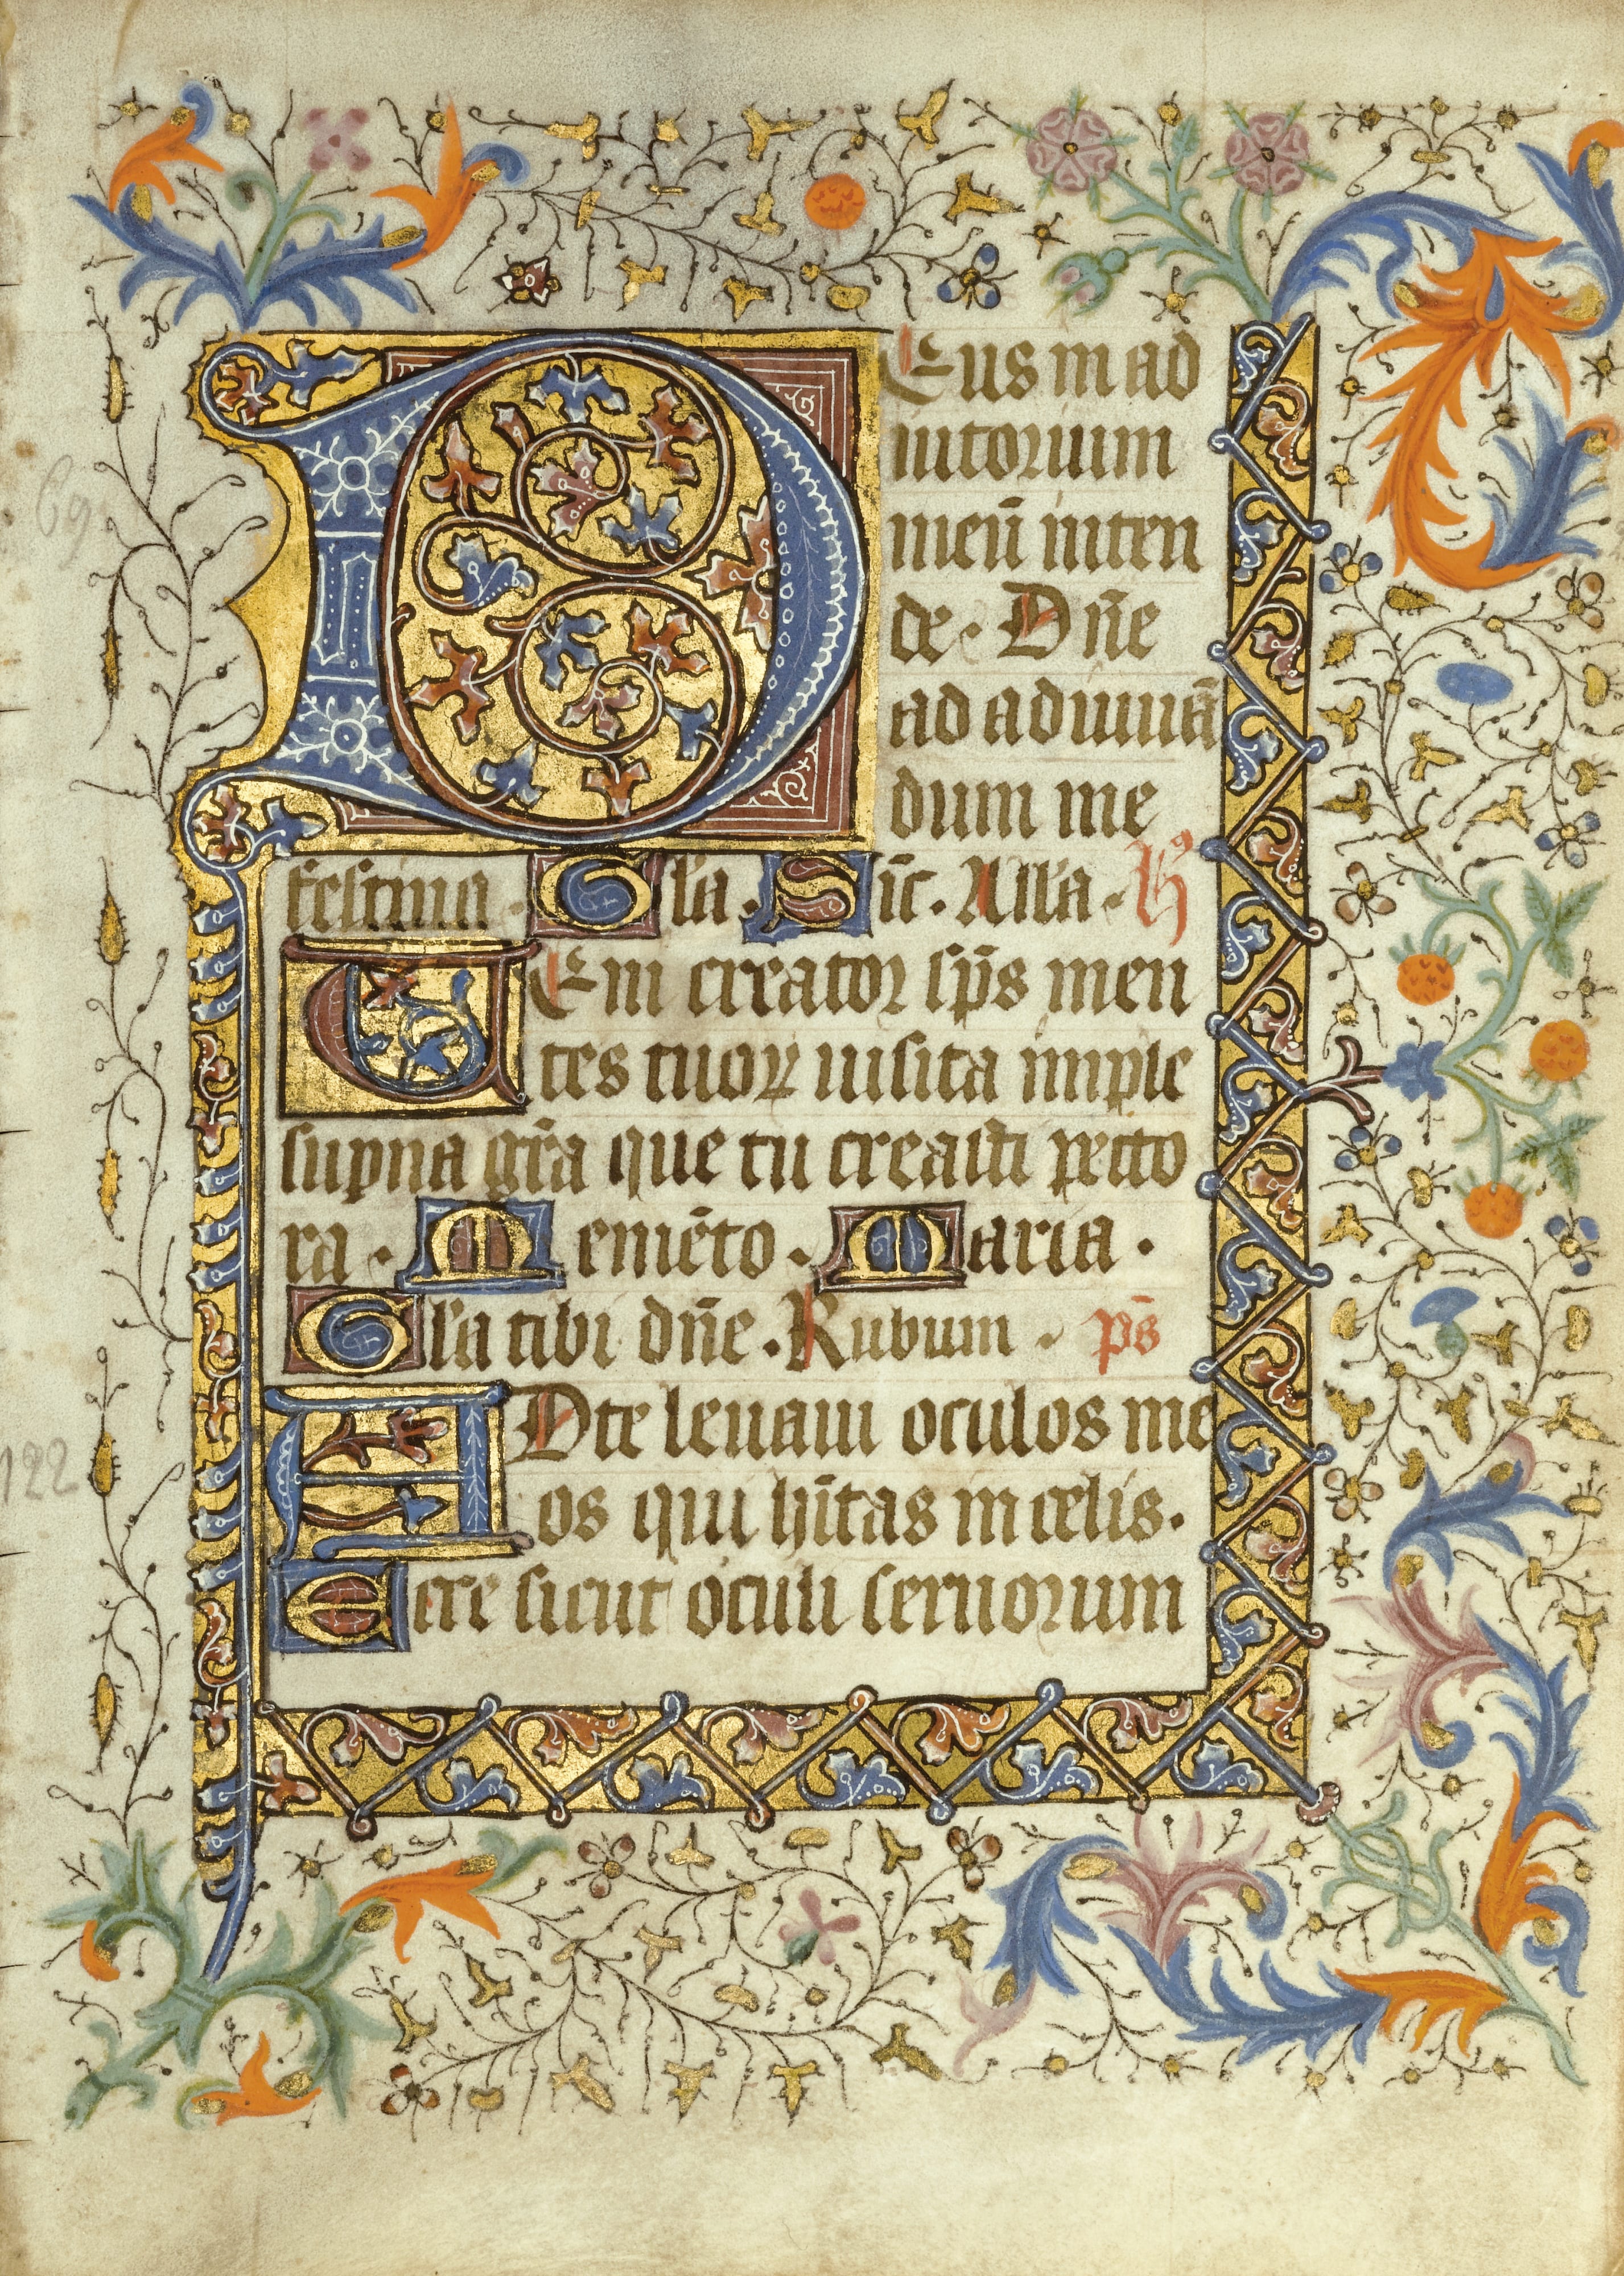 Deus in ad
iutorium
meū inten
de. Dn̄e
ad adiuuā
dum me
festina. Gl̄a. Sic̄. All̄a. h̄
Veni creator sp̄s men
tes tuoꝝ uisita imple
sup̱na gr̄a que tu creasti pecto
ra. Memēto. Maria.
Gl̄a tibi dn̄e. Rubum. p̄s
AD te leuaui oculos me
os qui hītas in celis.
Ecce sicut oculi seruorum
69
122